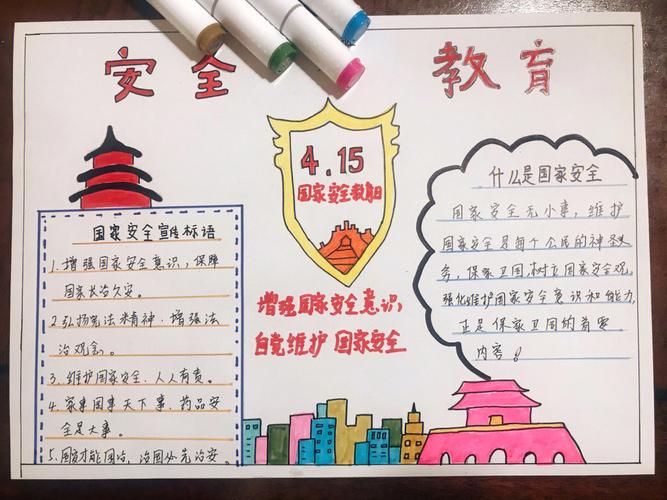 安全 教育
4.15
国家安全教育日
增强国家安全意识,
自觉维护 国家安全
国家安全宣传标语
1.增强国家安全意识,保障
国家长治久安。
2.弘扬宪法精神,增强法
治观念。
3.维护国家安全,人人有责。
4.家事国事天下事,药品安
全是大事。
5.国安才能国治,治国必先治安。
什么是国家安全
国家安全无小事,维护
国家安全是每个公民的神圣义
务,保家卫国,树立国家安全观。
强化维护国家安全意识和能力,
正是保家卫国的首要
内容。